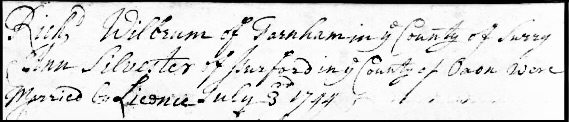 Richd Wilbeum of Farnham in ye County of Surry
Ann Silvester of Burford in ye County of Oxon Were
Married by Licence July 3d 1744